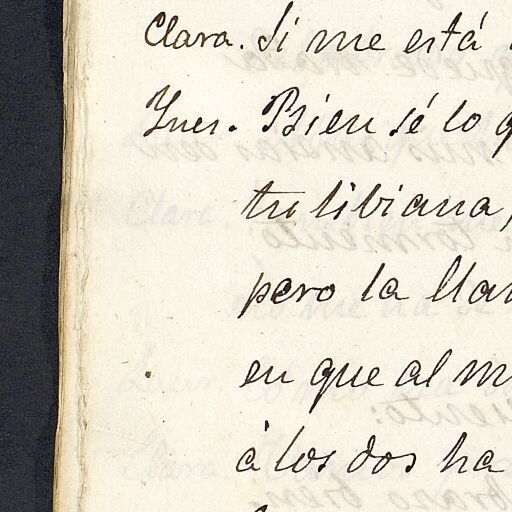 Clara. Si me está
Ines. Bien sé lo q
tu libiana,
pero la llan
en que al m
á los dos ha